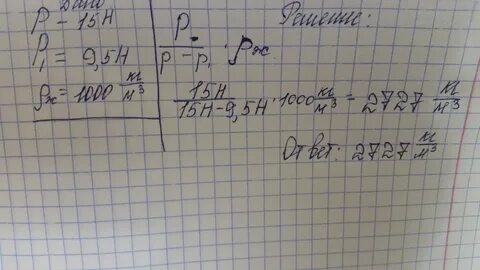 Дано
P - 15H
P₁ = 9,5H
ρж = 1000 кг/м³
Решение:
P / P - P₁ · ρж
15H / 15H - 9,5H · 1000 кг/м³ = 2727 кг/м³
Ответ: 2727 кг/м³